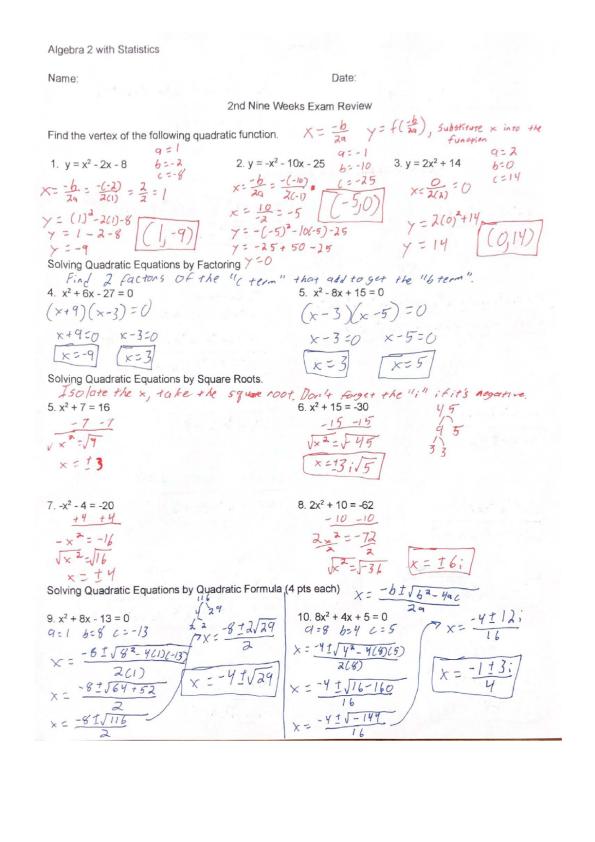 Algebra 2 with Statistics
Name: Date:
2nd Nine Weeks Exam Review
Find the vertex of the following quadratic function. x = -b/2a y = f(-b/2a), substitute x into the function
1. y = x² - 2x - 8
a = 1
b = -2
c = -8
x = -b/2a = -(-2)/2(1) = 2/2 = 1
y = (1)² - 2(1) - 8
y = 1 - 2 - 8
y = -9
(1, -9)
2. y = -x² - 10x - 25
a = -1
b = -10
c = -25
x = -b/2a = -(-10)/2(-1)
x = 10/-2 = -5
y = -(-5)² - 10(-5) - 25
y = -25 + 50 - 25
(-5, 0)
3. y = 2x² + 14
a = 2
b = 0
c = 14
x = 0/2(2) = 0
y = 2(0)² + 14
y = 14
(0, 14)
Solving Quadratic Equations by Factoring y = 0
Find 2 factors of the "c term" that add to get the "b term".
4. x² + 6x - 27 = 0
(x+9)(x-3) = 0
x+9=0 x-3=0
x = -9 x = 3
5. x² - 8x + 15 = 0
(x-3)(x-5) = 0
x-3=0 x-5=0
x = 3 x = 5
Solving Quadratic Equations by Square Roots.
Isolate the x, take the square root. Don't forget the "i" if it's negative.
5. x² + 7 = 16
-7 -7
√x² = √9
x = ±3
6. x² + 15 = -30
-15 -15
√x² = √-45
x = ±3i√5
45
9 5
3 3
7. -x² - 4 = -20
+4 +4
-x² = -16
√x² = √16
x = ±4
8. 2x² + 10 = -62
-10 -10
2x²/2 = -72/2
√x² = √-36
x = ±6i
Solving Quadratic Equations by Quadratic Formula (4 pts each) x = -b±√b²-4ac / 2a
9. x² + 8x - 13 = 0
a=1 b=8 c=-13
x = -8±√8²-4(1)(-13) / 2(1)
x = -8±√64+52 / 2
x = -8±√116 / 2
116
4 29
2 2
x = -8±2√29 / 2
x = -4±√29
10. 8x² + 4x + 5 = 0
a=8 b=4 c=5
x = -4±√4²-4(8)(5) / 2(8)
x = -4±√16-160 / 16
x = -4±√-144 / 16
x = -4±12i / 16
x = -1±3i / 4